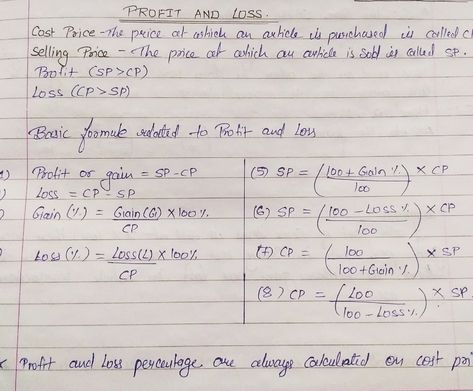 PROFIT AND LOSS.
Cost Price - The price at which an article is purchased is called C
Selling Price - The price at which an article is sold is called SP.
Profit (SP>CP)
Loss (CP>SP)
Basic formula related to Profit and Loss
1) Profit or gain = SP-CP
Loss = CP - SP
Gain (%) = Gain(G) × 100% / CP
Loss (%) = Loss(L) × 100% / CP
(5) SP = (100 + Gain % / 100) × CP
(6) SP = (100 - Loss % / 100) × CP
(7) CP = (100 / 100 + Gain %) × SP
(8) CP = (100 / 100 - Loss %) × SP
Profit and Loss percentage are always calculated on cost pri